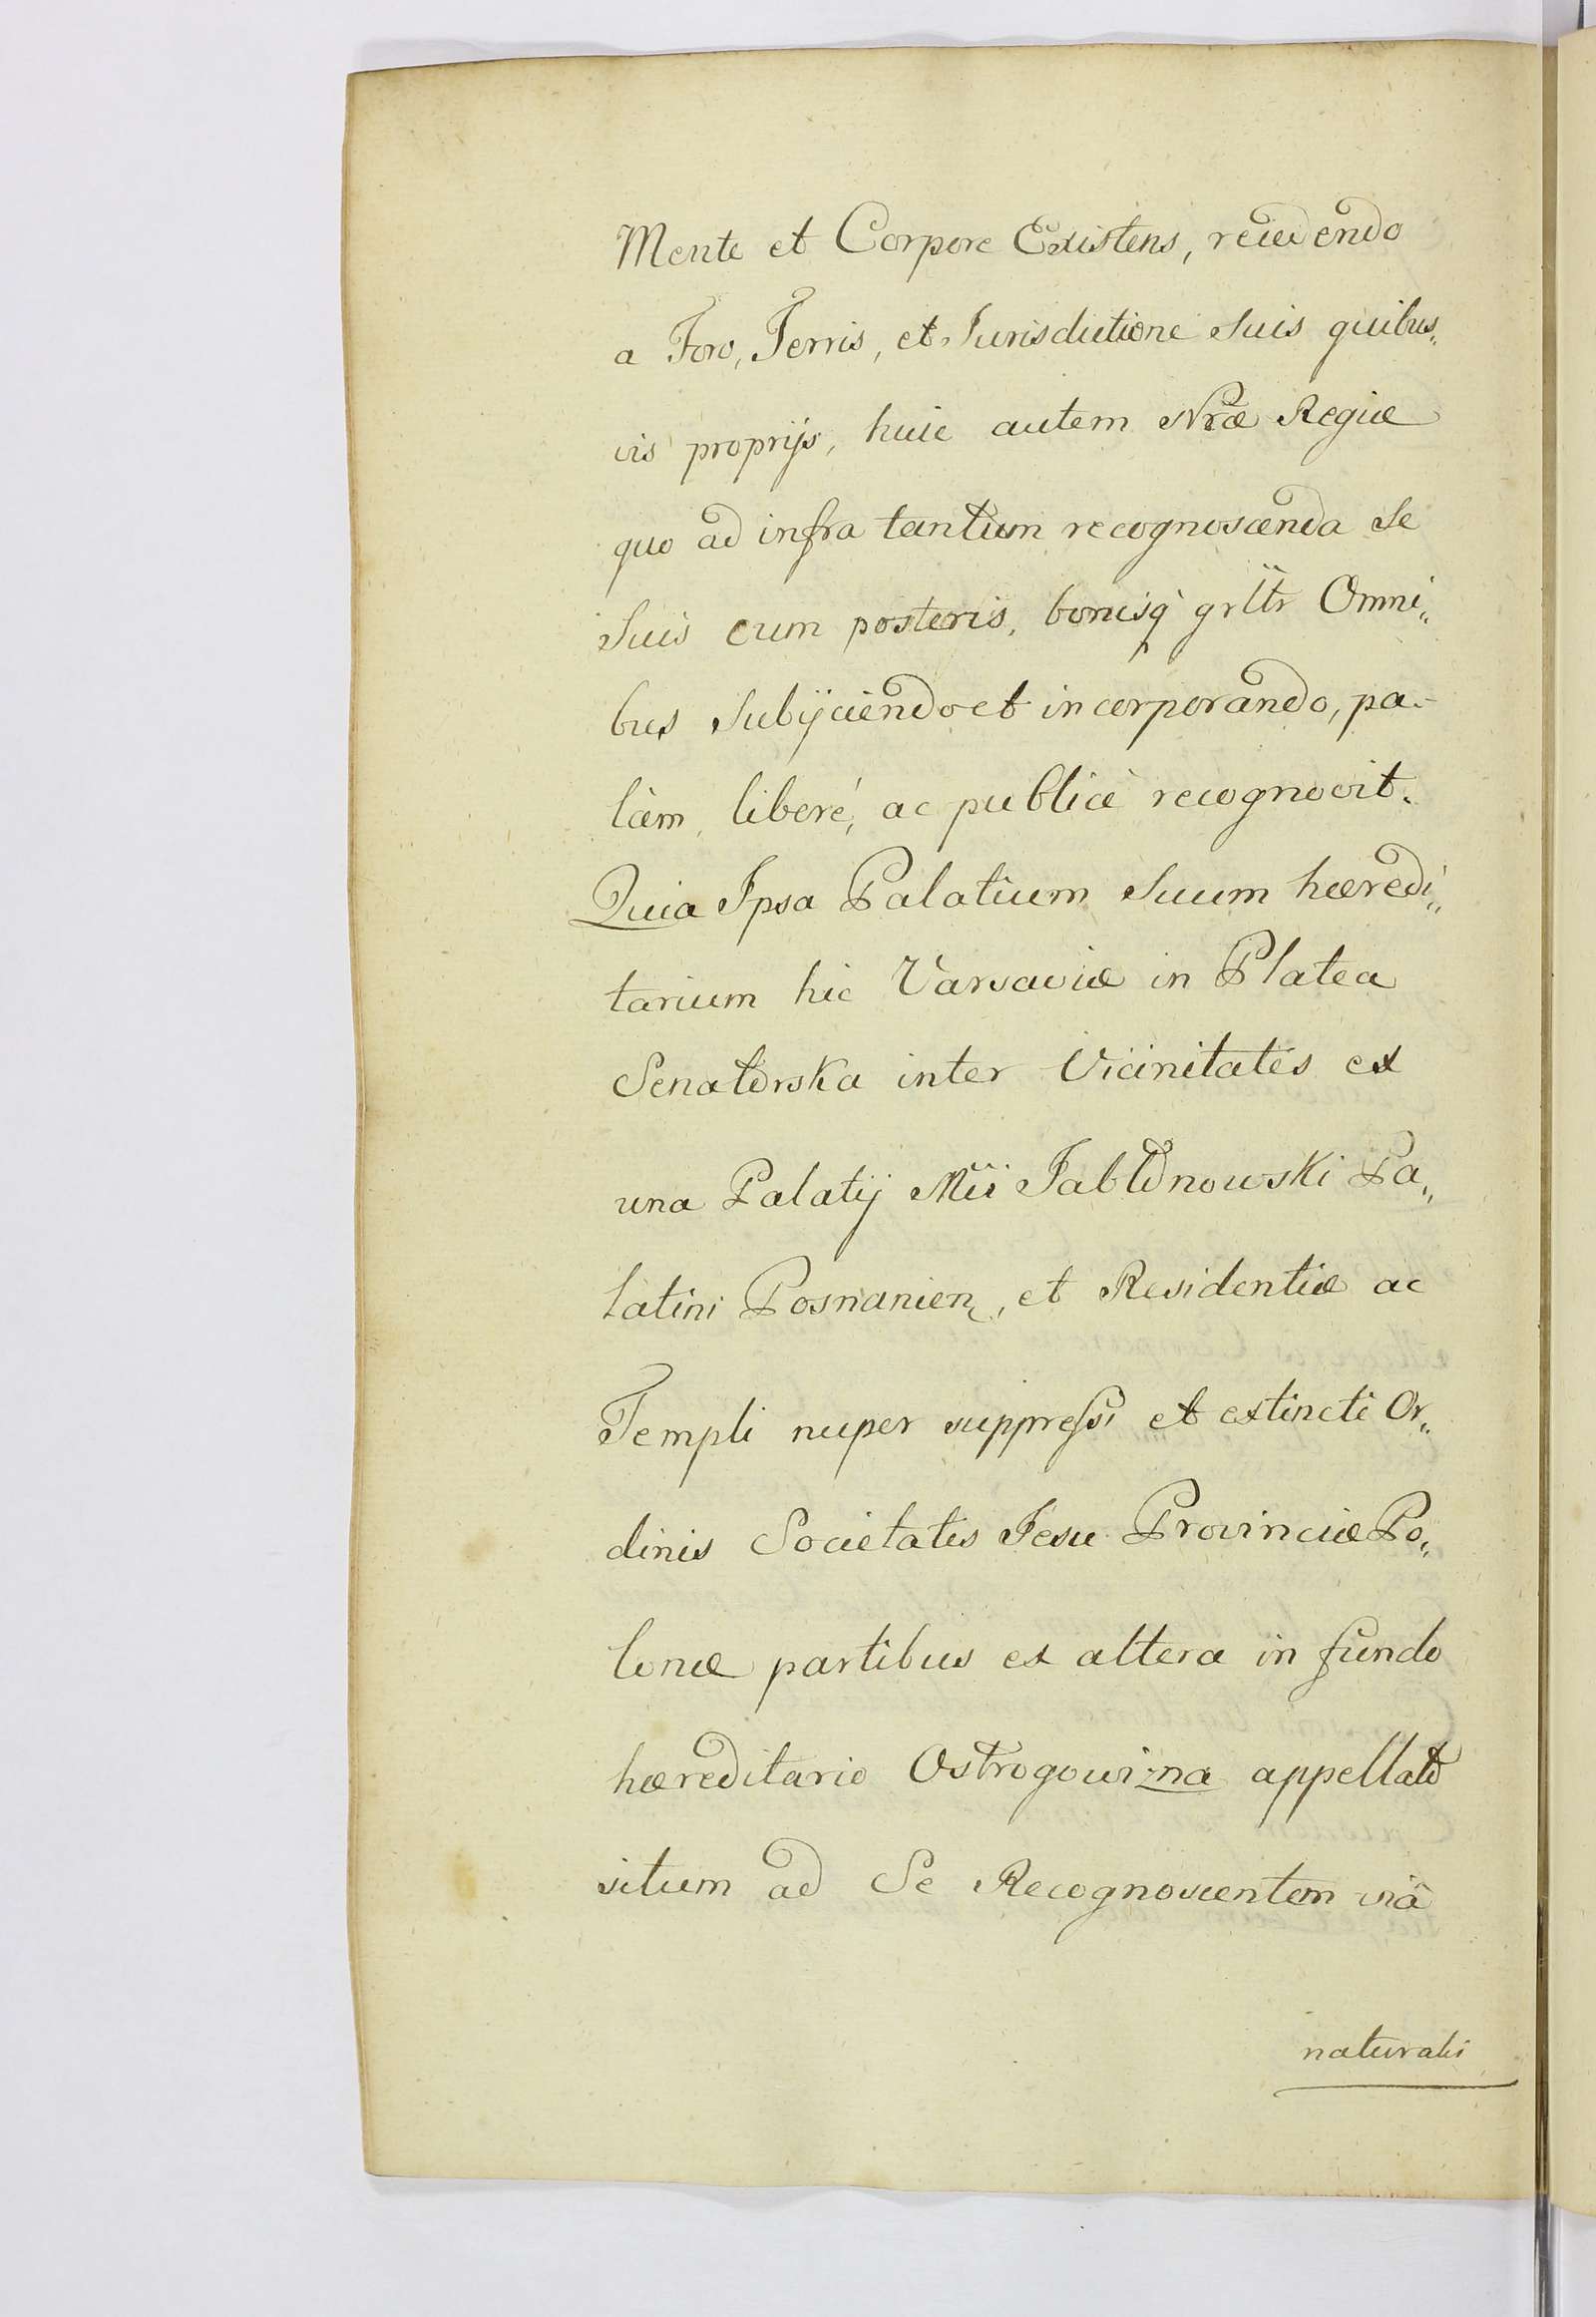 Mente et Corpore Existens, recedendo
a Foro, Terris, et Jurisdictione Suis quibus„
vis proprijs, huic autem Nrae Regiae
quo ad infra tantum recognoscenda Se
Suis cum posteris, bonisq grltr Omni„
bus Subijciendo et incorporando, pa„
làm, liberé, ac publicè recognovit.
Quia Ipsa Palatium Suum haeredi„
tarium hic Varsaviae in Platea
Senatorska inter Vicinitates ex
una Palatij Mii Jabłonowski Pa„
latini Posnanien, et Residentiae ac
Templi nuper suppressi et extincti Or„
dinis Societatis Jesu Provinciae Po„
loniae partibus ex altera in fundo
haereditario Ostrogowizna appellato
situm ad Se Recognoscentem viâ
naturali